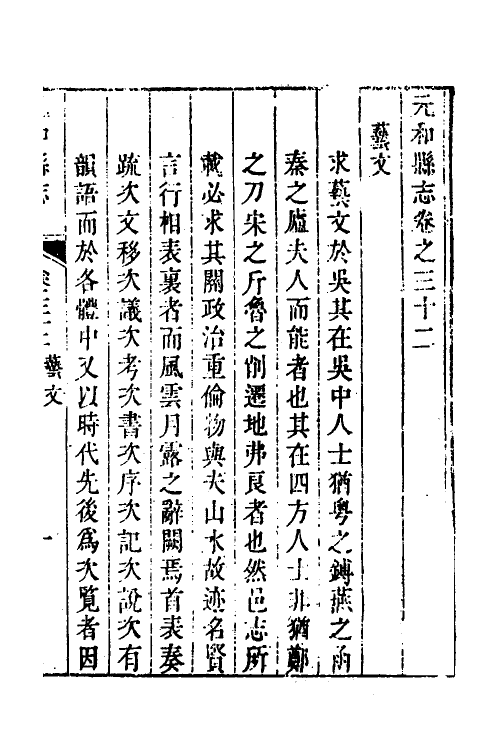 元和縣志卷之三十二
藝文
求藝文於吳其在吳中人士猶粤之鎛燕之函
秦之廬夫人而能者也其在四方人士非猶鄭
之刀宋之斤魯之削遷地弗良者也然邑志所
載必求其關政治重倫物與夫山水故迹名賢
言行相表裏者而風雲月露之辭闕焉首表奏
疏次文移次議次考次書次序次記次說次有
韻語而於各體中又以時代先後爲次覽者因
藝文
一